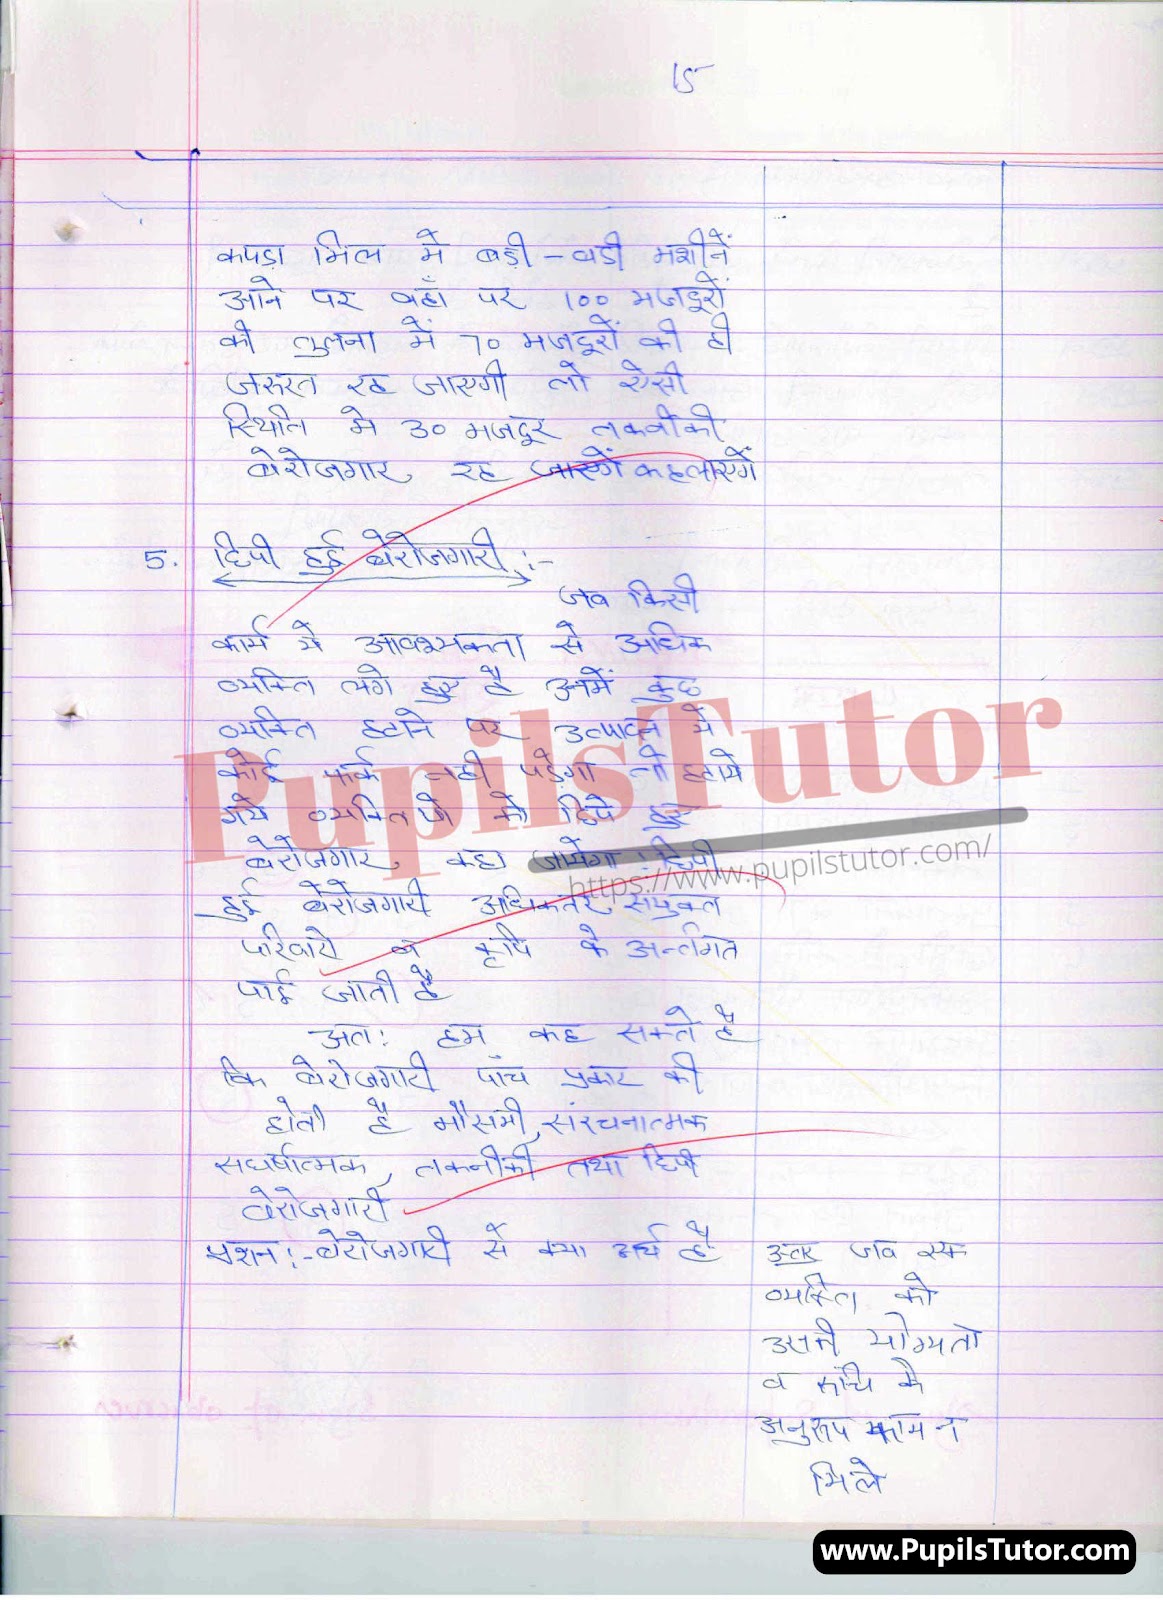 15
कपड़ा मिल में बड़ी-बडी मशीनें
आने पर वहाँ पर 100 मजदूरों
की तुलना में 70 मजदूरों की ही
जरुरत रह जाएगी तो ऐसी
स्थिति मे 30 मजदूर तकनीकी
बेरोजगार रह जाएगें कहलाएगें
5. छिपी हुई बेरोजगारी :-
जब किसी
कार्य मे आवश्यकता से अधिक
व्यक्ति लगे हुए है उनमें कुछ
व्यक्ति हटाने पर उत्पादन मे
कोई फर्क नही पड़ेगा तो हटाये
गये व्यक्तियो को छिपे हुए
बेरोजगार कहा जायेगा। छिपी
हुई बेरोजगारी अधिकतर सयुक्त
परिवारो व कृषि के अर्न्तगत
पाई जाती है
अतः हम कह सकते है
कि बेरोजगारी पाँच प्रकार की
होती है मौसमी, संरचनात्मक
सघर्षात्मक, तकनीकी तथा छिपी
बेरोजगारी
प्रशन :- बेरोजगारी से क्या अर्थ है
उत्तर जब एक
व्यक्ति को
उसकी योग्यता
व रूचि के
अनुरूप काम न
मिले
PupilsTutor
https://www.pupilstutor.com/
www.PupilsTutor.com